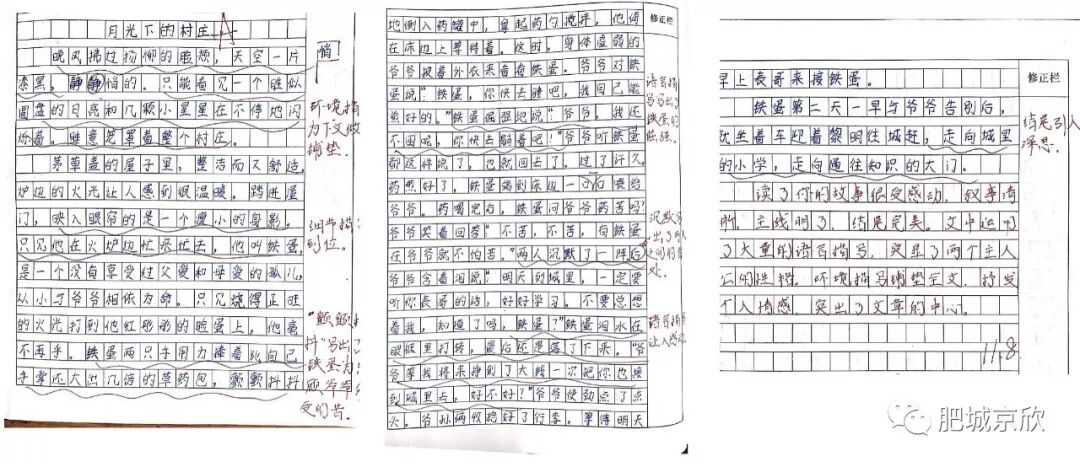 月光下的村庄 A
晚风拂过杨柳的脸颊，天空一片
悄
漆黑，静静悄的。只能看见一个胜似
圆盘的月亮和几颗小星星在不停地闪
烁着，睡意笼罩着整个村庄。
环境描
为下文做
铺垫。
茅草盖的屋子里，整洁而又舒适，
炉边的火光让人感到很温暖。踏进屋
门，映入眼帘的是一个瘦小的身影。
只见他在火炉边忙来忙去，他叫铁蛋，
细节描
到位。
是一个没有享受过父爱和母爱的孤儿，
从小与爷爷相依为命。只见烧得正旺
的火光打到他红彤彤的脸蛋上，他毫
不再乎。铁蛋两只手用力捧着比自己
手掌还大出几倍的草药包，颤颤抖抖
"颤颤抖
抖"写出了
铁蛋为了
顾爷爷
受的苦。
地倒入药罐中，拿起药勺搅拌。他倚
修正栏
在床边上等待着。这时，身体虚弱的
爷爷披着外衣来看看铁蛋。爷爷对铁
蛋说："铁蛋，你快去睡吧，我自己能
熬好的。"铁蛋倔强地说："爷爷，我还
不困呢，你快去躺着吧！"爷爷听铁蛋
语言描
写写出了
铁蛋的
都这样说了，也就回去了，过了许久，
药熬好了，铁蛋端到床边一口口喂给
爷爷。药喝完后，铁蛋问爷爷药苦吗？
爷爷笑着回答"不苦，不苦，有铁蛋
在爷爷就不怕苦。"两人沉默了一阵后
爷爷含着泪说："明天到城里，一定要
听你表哥的话，好好学习。不要总想
着我，知道了吗，铁蛋？"铁蛋泪水在
语言描
让人感动
眼眶里打转，最后还是落了下来。"爷
爷等我将来挣到了大钱一次把你也接
到城里去，好不好？"爷爷使劲点了点
头。爷孙俩收拾好了行李，等待明天
早上表哥来接铁蛋。
修正栏
铁蛋第二天一早与爷爷告别后，
就坐着车迎着黎明往城赶，走向城里
的小学，走向通往知识的大门。
结尾引人
深思。
读了你的故事很受感动，叙事清
晰，主线明了，结尾完美。文中运用
了大量的语言描写，突显了两个主人
公的性格。环境描写铺垫全文，抒发
个人情感，突出了文章的中心。
11.8
肥城京欣